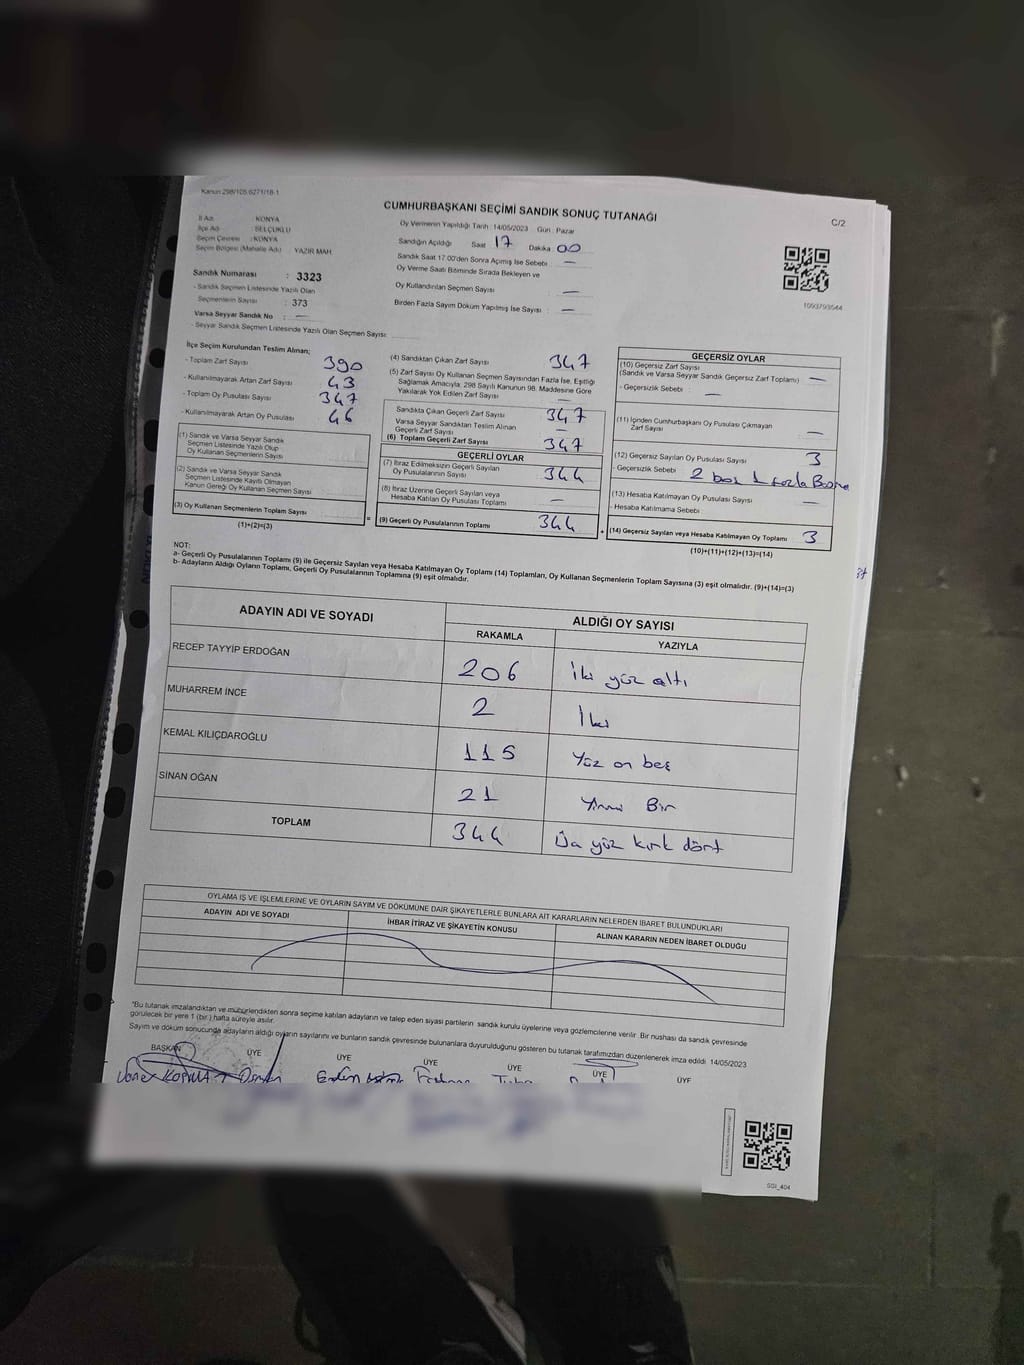 Kanun 298/105 6271/18-1
CUMHURBAŞKANI SEÇİMİ SANDIK SONUÇ TUTANAĞI
C/2
İl Adı : KONYA
İlçe Adı : SELÇUKLU
Seçim Çevresi : KONYA
Seçim Bölgesi (Mahalle Adı) : YAZIR MAH.
Sandık Numarası : 3323
- Sandık Seçmen Listesinde Yazılı Olan
Seçmenlerin Sayısı : 373
Varsa Seyyar Sandık No : —
- Seyyar Sandık Seçmen Listesinde Yazılı Olan Seçmen Sayısı:
Oy Vermenin Yapıldığı Tarih :14/05/2023 Gün : Pazar
Sandığın Açıldığı Saat : 17 Dakika : 00
Sandık Saat 17.00'den Sonra Açılmış İse Sebebi : —
Oy Verme Saati Bitiminde Sırada Bekleyen ve
Oy Kullandırılan Seçmen Sayısı : —
Birden Fazla Sayım Döküm Yapılmış İse Sayısı : —
1093793544
İlçe Seçim Kurulundan Teslim Alınan;
- Toplam Zarf Sayısı : 390
- Kullanılmayarak Artan Zarf Sayısı : 43
- Toplam Oy Pusulası Sayısı : 347
- Kullanılmayarak Artan Oy Pusulası : 46
(1) Sandık ve Varsa Seyyar Sandık
Seçmen Listesinde Yazılı Olup
Oy Kullanan Seçmenlerin Sayısı
(2) Sandık ve Varsa Seyyar Sandık
Seçmen Listesinde Kayıtlı Olmayan
Kanun Gereği Oy Kullanan Seçmen Sayısı :
(3) Oy Kullanan Seçmenlerin Toplam Sayısı
(1)+(2)=(3)
(4) Sandıktan Çıkan Zarf Sayısı : 347
(5) Zarf Sayısı Oy Kullanan Seçmen Sayısından Fazla İse, Eşitliği
Sağlamak Amacıyla; 298 Sayılı Kanunun 98. Maddesine Göre
Yakılarak Yok Edilen Zarf Sayısı : —
Sandıkta Çıkan Geçerli Zarf Sayısı : 347
Varsa Seyyar Sandıktan Teslim Alınan
Geçerli Zarf Sayısı : —
(6) Toplam Geçerli Zarf Sayısı : 347
GEÇERLİ OYLAR
(7) İtiraz Edilmeksizin Geçerli Sayılan
Oy Pusulalarının Sayısı : 344
(8) İtiraz Üzerine Geçerli Sayılan veya
Hesaba Katılan Oy Pusulası Toplamı : —
= (9) Geçerli Oy Pusulalarının Toplamı : 344 +
GEÇERSİZ OYLAR
(10) Geçersiz Zarf Sayısı
(Sandık ve Varsa Seyyar Sandık Geçersiz Zarf Toplamı) : —
- Geçersizlik Sebebi : —
(11) İçinden Cumhurbaşkanı Oy Pusulası Çıkmayan
Zarf Sayısı : —
(12) Geçersiz Sayılan Oy Pusulası Sayısı : 3
- Geçersizlik Sebebi : 2 boş 1 fazla
(13) Hesaba Katılmayan Oy Pusulası Sayısı : —
- Hesaba Katılmama Sebebi :
(14) Geçersiz Sayılan veya Hesaba Katılmayan Oy Toplamı : 3
(10)+(11)+(12)+(13)=(14)
NOT:
a- Geçerli Oy Pusulalarının Toplamı (9) ile Geçersiz Sayılan veya Hesaba Katılmayan Oy Toplamı (14) Toplamları, Oy Kullanan Seçmenlerin Toplam Sayısına (3) eşit olmalıdır. (9)+(14)=(3)
b- Adayların Aldığı Oyların Toplamı, Geçerli Oy Pusulalarının Toplamına (9) eşit olmalıdır.
ADAYIN ADI VE SOYADI ALDIĞI OY SAYISI
RAKAMLA YAZIYLA
RECEP TAYYİP ERDOĞAN 206 İki yüz altı
MUHARREM İNCE 2 İki
KEMAL KILIÇDAROĞLU 115 Yüz on beş
SİNAN OĞAN 21 Yirmi Bir
TOPLAM 344 Üç yüz kırk dört
OYLAMA İŞ VE İŞLEMLERİNE VE OYLARIN SAYIM VE DÖKÜMÜNE DAİR ŞİKAYETLERLE BUNLARA AİT KARARLARIN NELERDEN İBARET BULUNDUKLARI
ADAYIN ADI VE SOYADI İHBAR İTİRAZ VE ŞİKAYETİN KONUSU ALINAN KARARIN NEDEN İBARET OLDUĞU
*Bu tutanak imzalandıktan ve mühürlendikten sonra seçime katılan adayların ve talep eden siyasi partilerin sandık kurulu üyelerine veya gözlemcilerine verilir. Bir nushası da sandık çevresinde
görülecek bir yere 1 (bir) hafta süreyle asılır.
Sayım ve döküm sonucunda adayların aldığı oyların sayılarını ve bunların sandık çevresinde bulunanlara duyurulduğunu gösteren bu tutanak tarafımızdan düzenlenerek imza edildi 14/05/2023
BAŞKAN ÜYE ÜYE ÜYE ÜYE ÜYE ÜYE
SSI_404